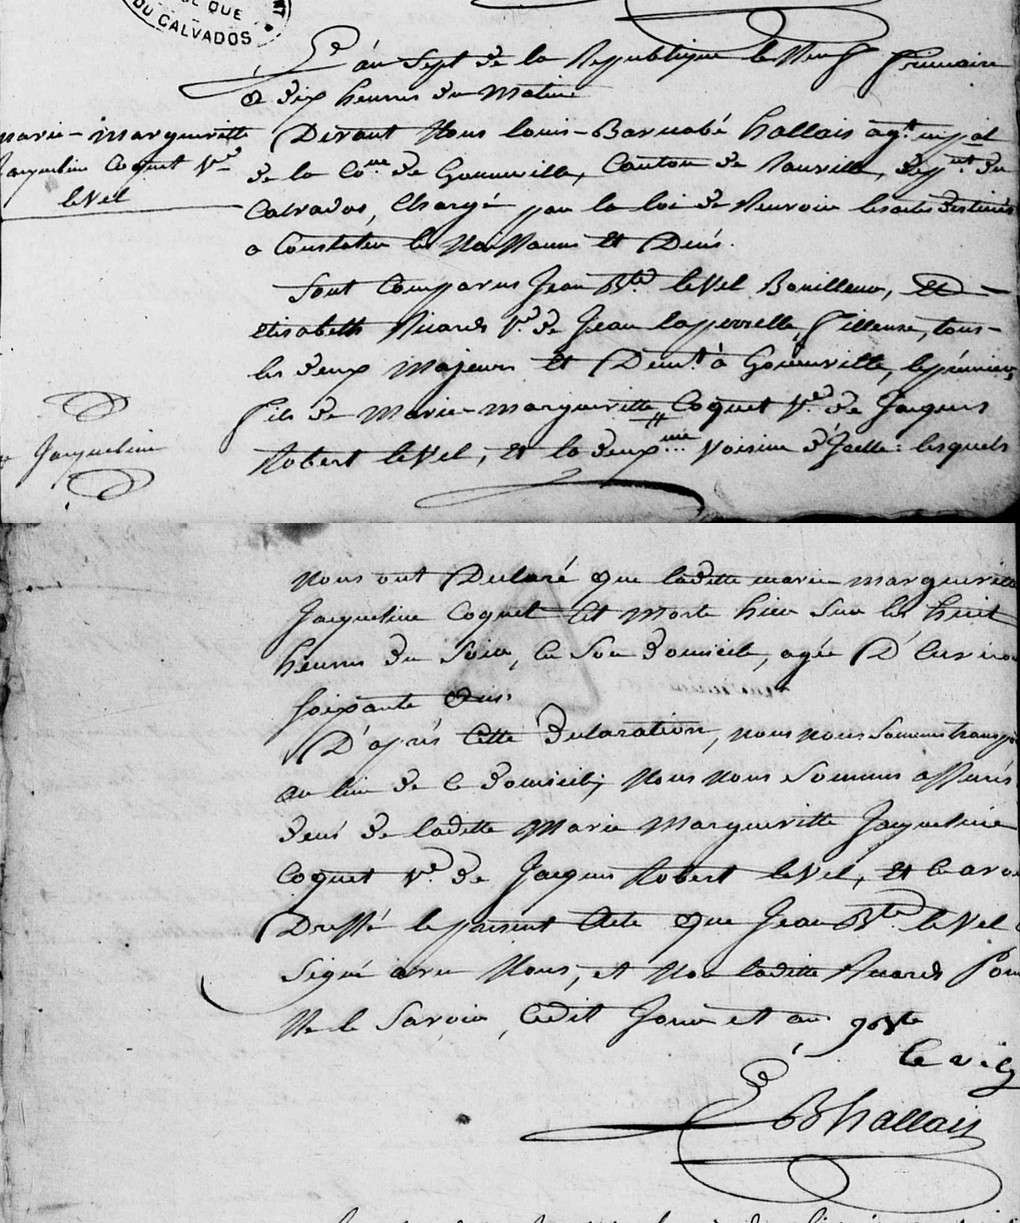 QUE
DU CALVADOS
L'an Sept de la Republique le Neuf frimaire
a dix heures du Matin
marie-margueritte
Jacqueline Coquet Ve
leVel
Devant Nous louis-Barnabé hallais agt mpal
de la Cone de Gonneville, Canton de Ranville, depnt du
Calvados, Chargé par la loi de Recevoir les actes destinés
a Constater les Naissances et Deces.
Sont Comparus Jean Bte leVel Bouilleur, et
elisabeth Ricard Ve de Jean laperrelle, filleuse, tous
les deux Majeurs et Demt à Gonneville, le premier,
fils de Marie-margueritte # Coquet Ve de Jacques
# Jacqueline
Robert leVel, et la deuxme voisine d'Icelle: lesquels
Nous ont Declaré que laditte marie marguerite
Jacqueline Coquet est Morte hier Sur les huit
heures du Soir, en Son domicile, agée D'environ
soixante dix
D'après Cette declaration, nous nous Sommes transpor
au lieu de ce domicile, Nous Nous Sommes assurés
decé de laditte Marie Marguerite Jacqueline
Coquet Ve de Jacques Robert leVel, et en avo
Dressé le present Acte que Jean Bte leVel
Signé avec Nous, et Non laditte Ricard Pour
Ne le Savoir, Cedit Jour et an
L B hallais